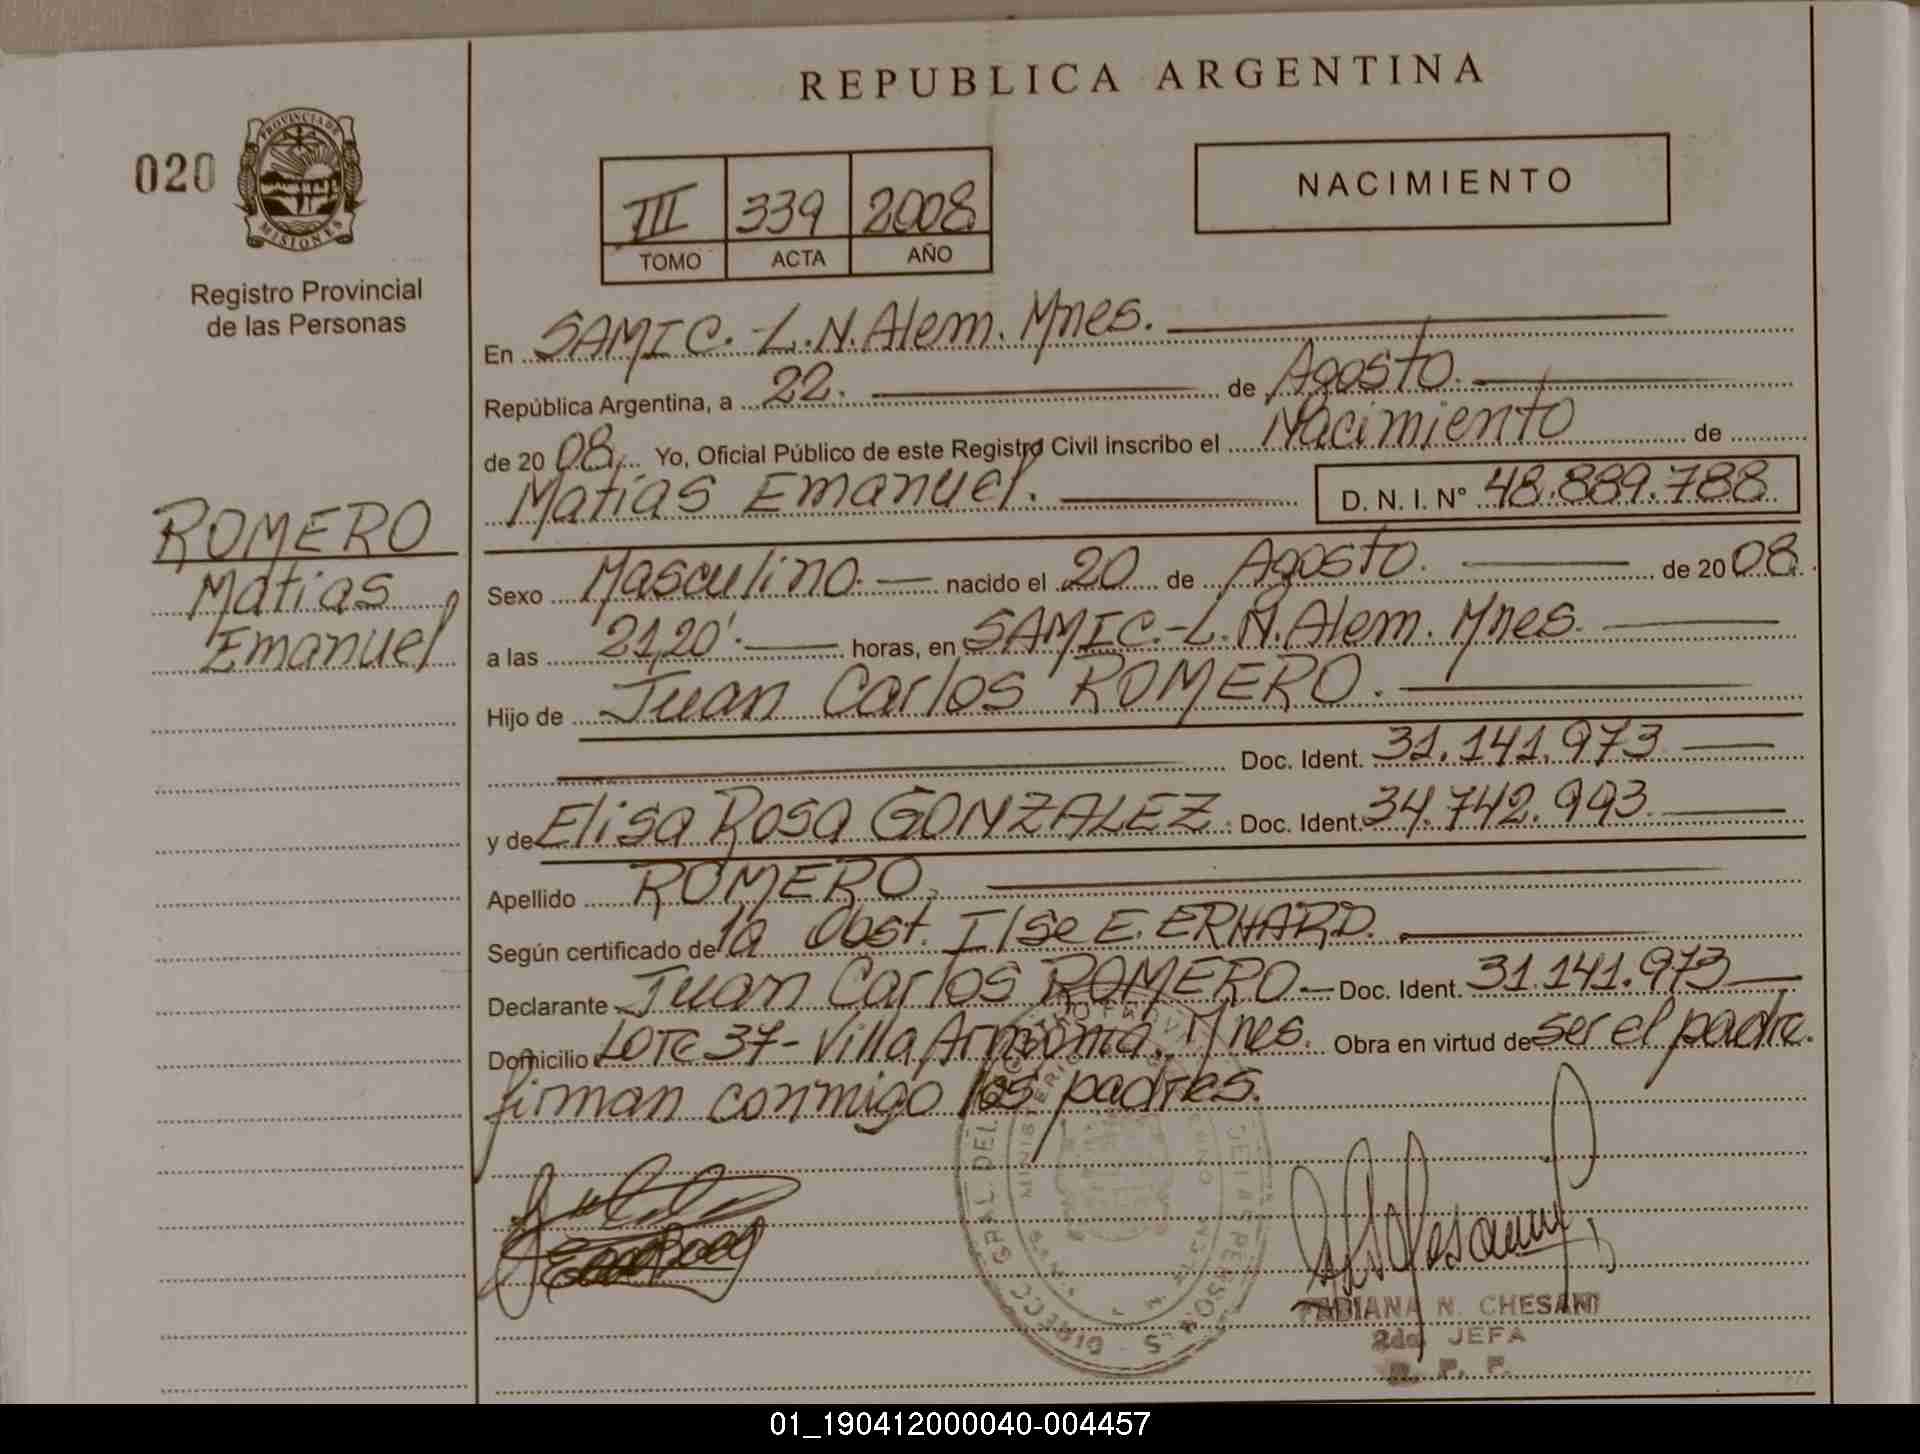 REPUBLICA ARGENTINA
020
PROVINCIA DE
MISIONES
Registro Provincial
de las Personas
III 339 2008
TOMO ACTA AÑO
NACIMIENTO
En SAMIC.-L.N.Alem. Mnes.
República Argentina, a 22. de Agosto.
de 20 08. Yo, Oficial Público de este Registro Civil inscribo el Nacimiento de
Matías Emanuel. D. N. I. N° 48.889.788
ROMERO
Matías
Emanuel
Sexo Masculino. nacido el 20 de Agosto. de 20 08.
a las 21,20'. horas, en SAMIC.-L.N.Alem. Mnes.
Hijo de Juan Carlos ROMERO.
Doc. Ident. 31.141.973
y de Elisa Rosa GONZALEZ. Doc. Ident. 34.742.993
Apellido ROMERO.
Según certificado de la Obst. Ilse E. ERHARD.
Declarante Juan Carlos ROMERO Doc. Ident. 31.141.973
Domicilio Lote 37-Villa Armonía. Mnes. Obra en virtud de ser el padre.
firman conmigo los padres.
FABIANA N. CHESANI
2da. JEFA
R. P. P.
01_190412000040-004457